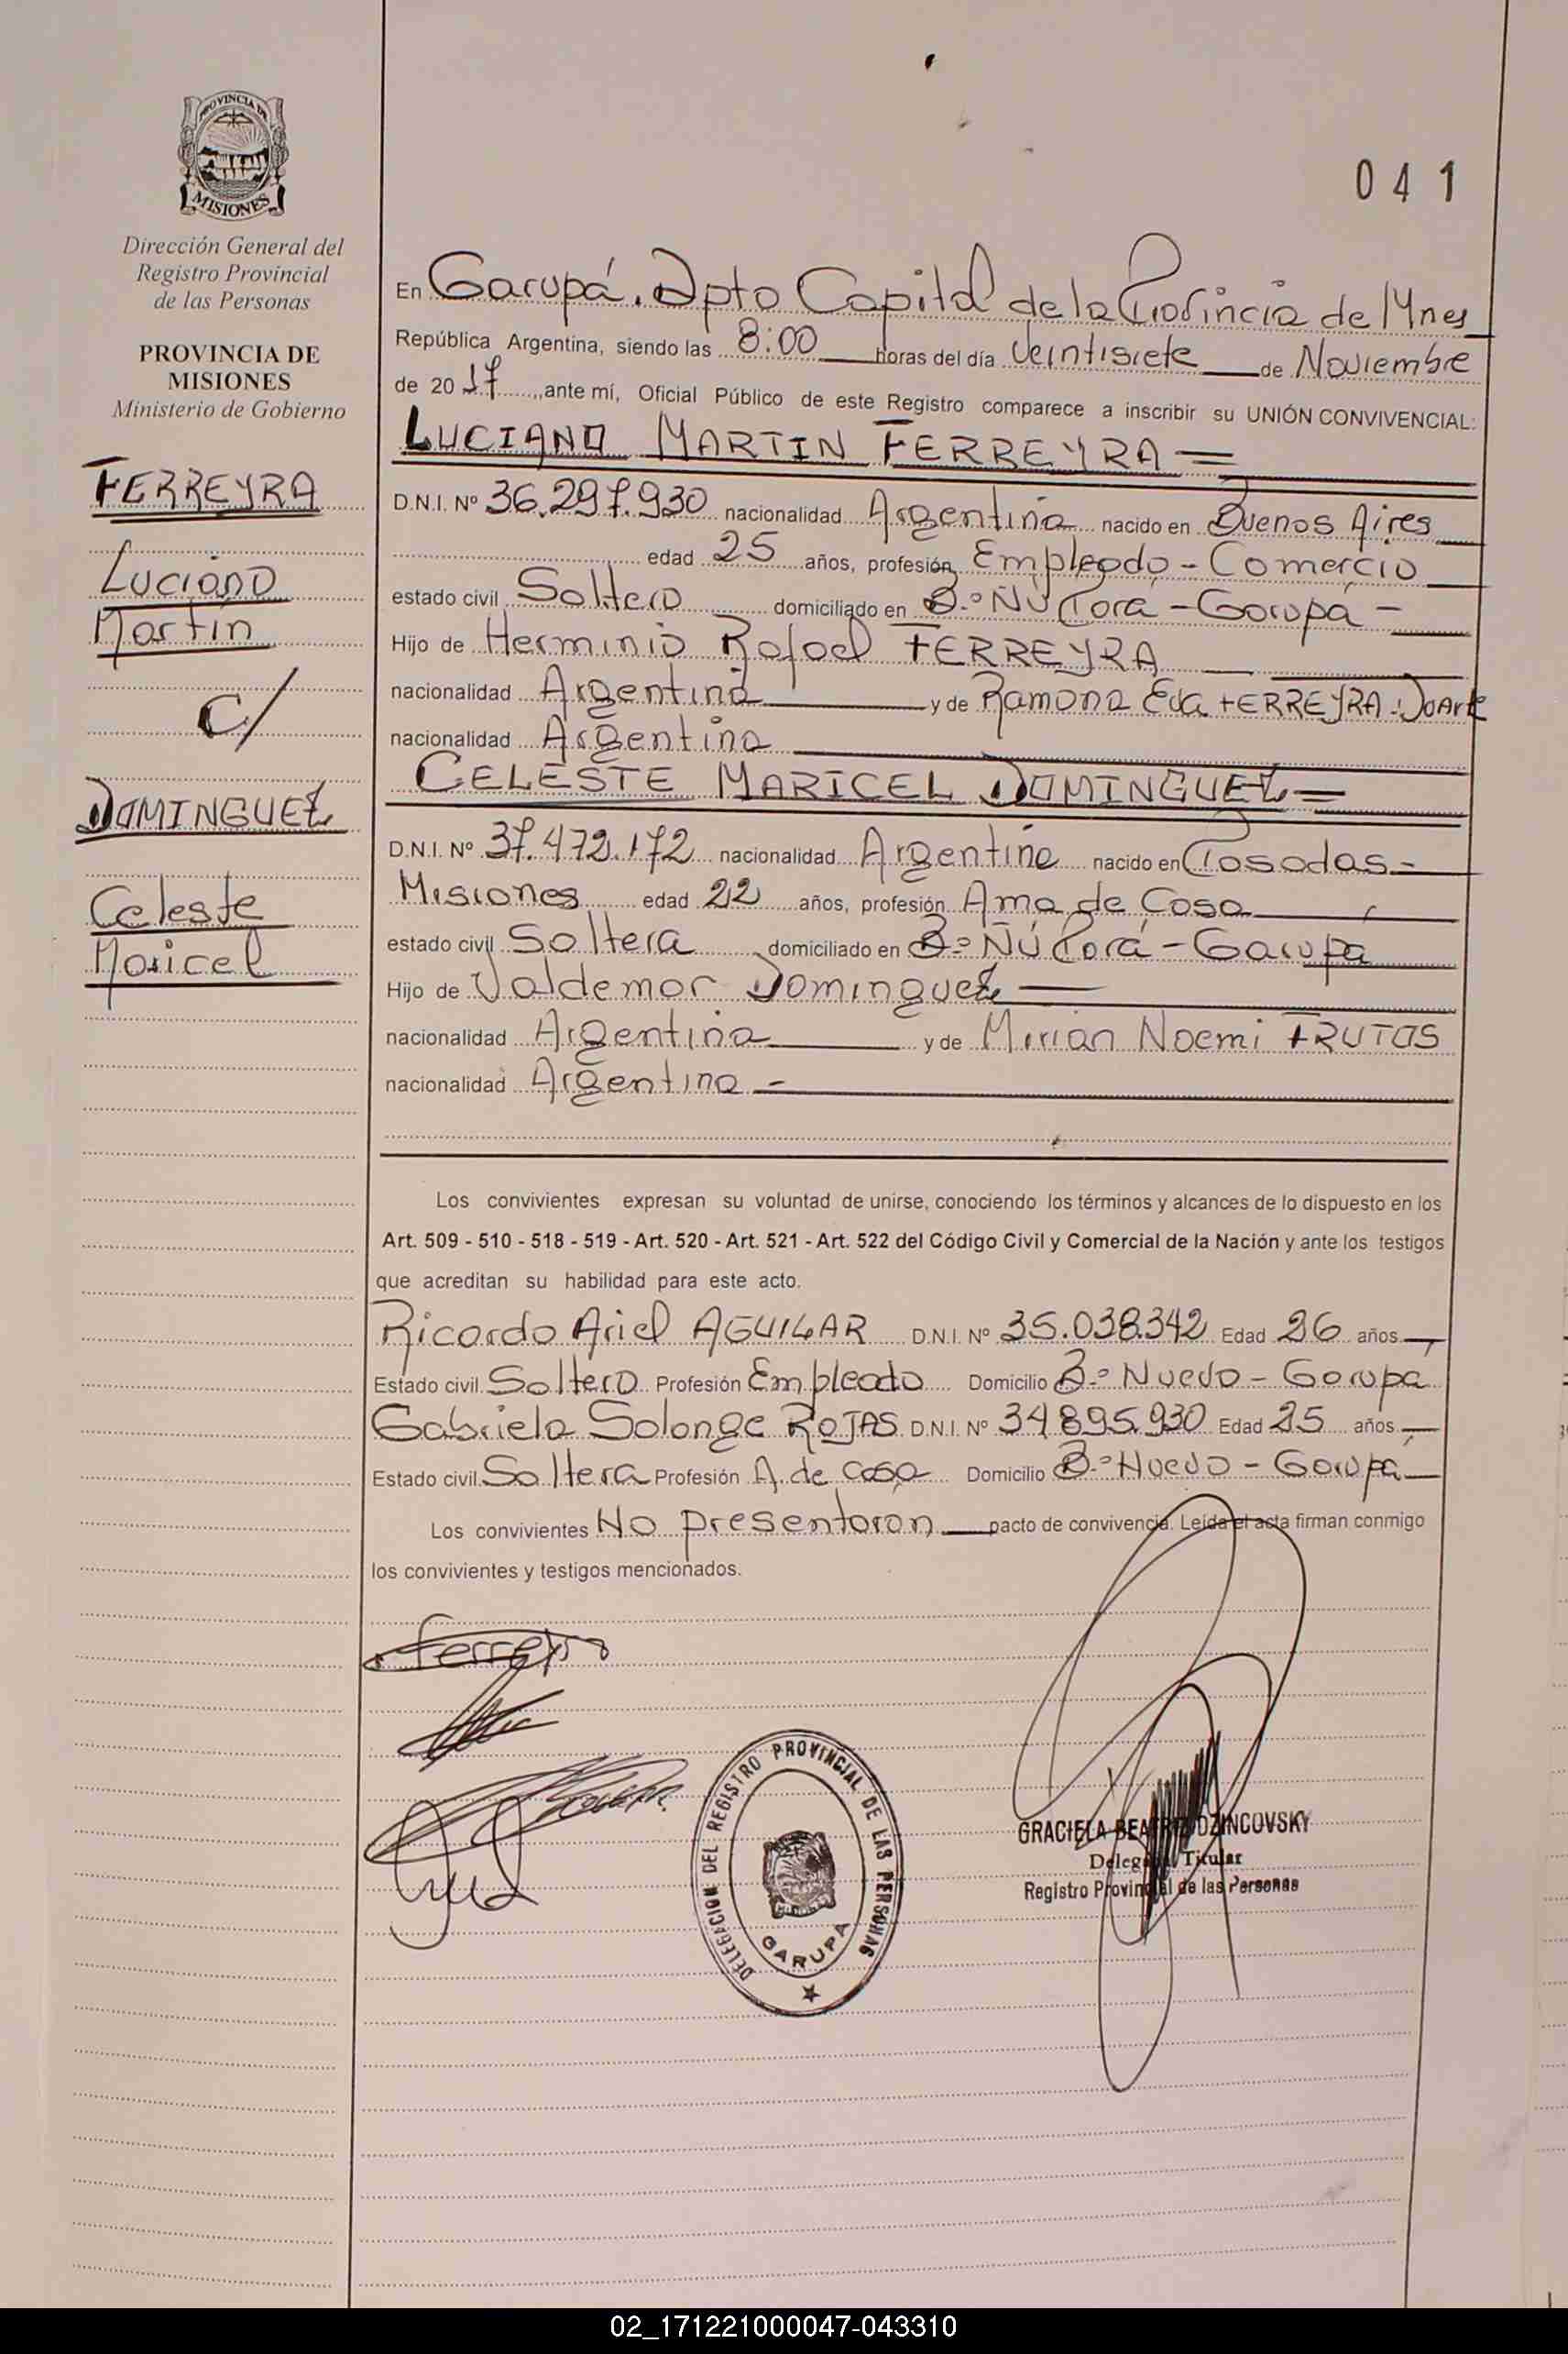 041
PROVINCIA DE
MISIONES
Dirección General del
Registro Provincial
de las Personas
PROVINCIA DE
MISIONES
Ministerio de Gobierno
FERREYRA
Luciano
Martín
c/
DOMINGUEZ
Celeste
Maricel
En Garupá. Dpto Capital de la Provincia de Mnes
República Argentina, siendo las 8:00 horas del día Veintisiete de Noviembre
de 2017, ante mí, Oficial Público de este Registro comparece a inscribir su UNIÓN CONVIVENCIAL:
LUCIANO MARTIN FERREYRA =
D.N.I. Nº 36.297.930 nacionalidad Argentina nacido en Buenos Aires
edad 25 años, profesión Empleado - Comercio
estado civil Soltero domiciliado en B.º Ñú Porá - Garupá -
Hijo de Herminio Rafael FERREYRA
nacionalidad Argentina y de Ramona Eva FERREYRA Duarte
nacionalidad Argentina
CELESTE MARICEL DOMINGUEZ =
D.N.I. Nº 37.472.172 nacionalidad Argentina nacido en Posadas -
Misiones edad 22 años, profesión Ama de Casa
estado civil Soltera domiciliado en B.º Ñú Porá - Garupá
Hijo de Valdemar Dominguez
nacionalidad Argentina y de Mirian Noemi FRUTOS
nacionalidad Argentina -
Los convivientes expresan su voluntad de unirse, conociendo los términos y alcances de lo dispuesto en los
Art. 509 - 510 - 518 - 519 - Art. 520 - Art. 521 - Art. 522 del Código Civil y Comercial de la Nación y ante los testigos
que acreditan su habilidad para este acto.
Ricardo Ariel AGUILAR D.N.I. Nº 35.038.342 Edad 26 años
Estado civil Soltero Profesión Empleado Domicilio B.º Nuevo - Garupá
Gabriela Solange ROJAS D.N.I. Nº 34.895.930 Edad 25 años
Estado civil Soltera Profesión A. de casa Domicilio B.º Nuevo - Garupá
Los convivientes No presentaron pacto de convivencia. Leída el acta firman conmigo
los convivientes y testigos mencionados.
Ferreyra
DELEGACION DEL REGISTRO PROVINCIAL DE LAS PERSONAS
GARUPA
GRACIELA DZINCOVSKY
Titular
Registro Provincial de las Personas
02_171221000047-043310